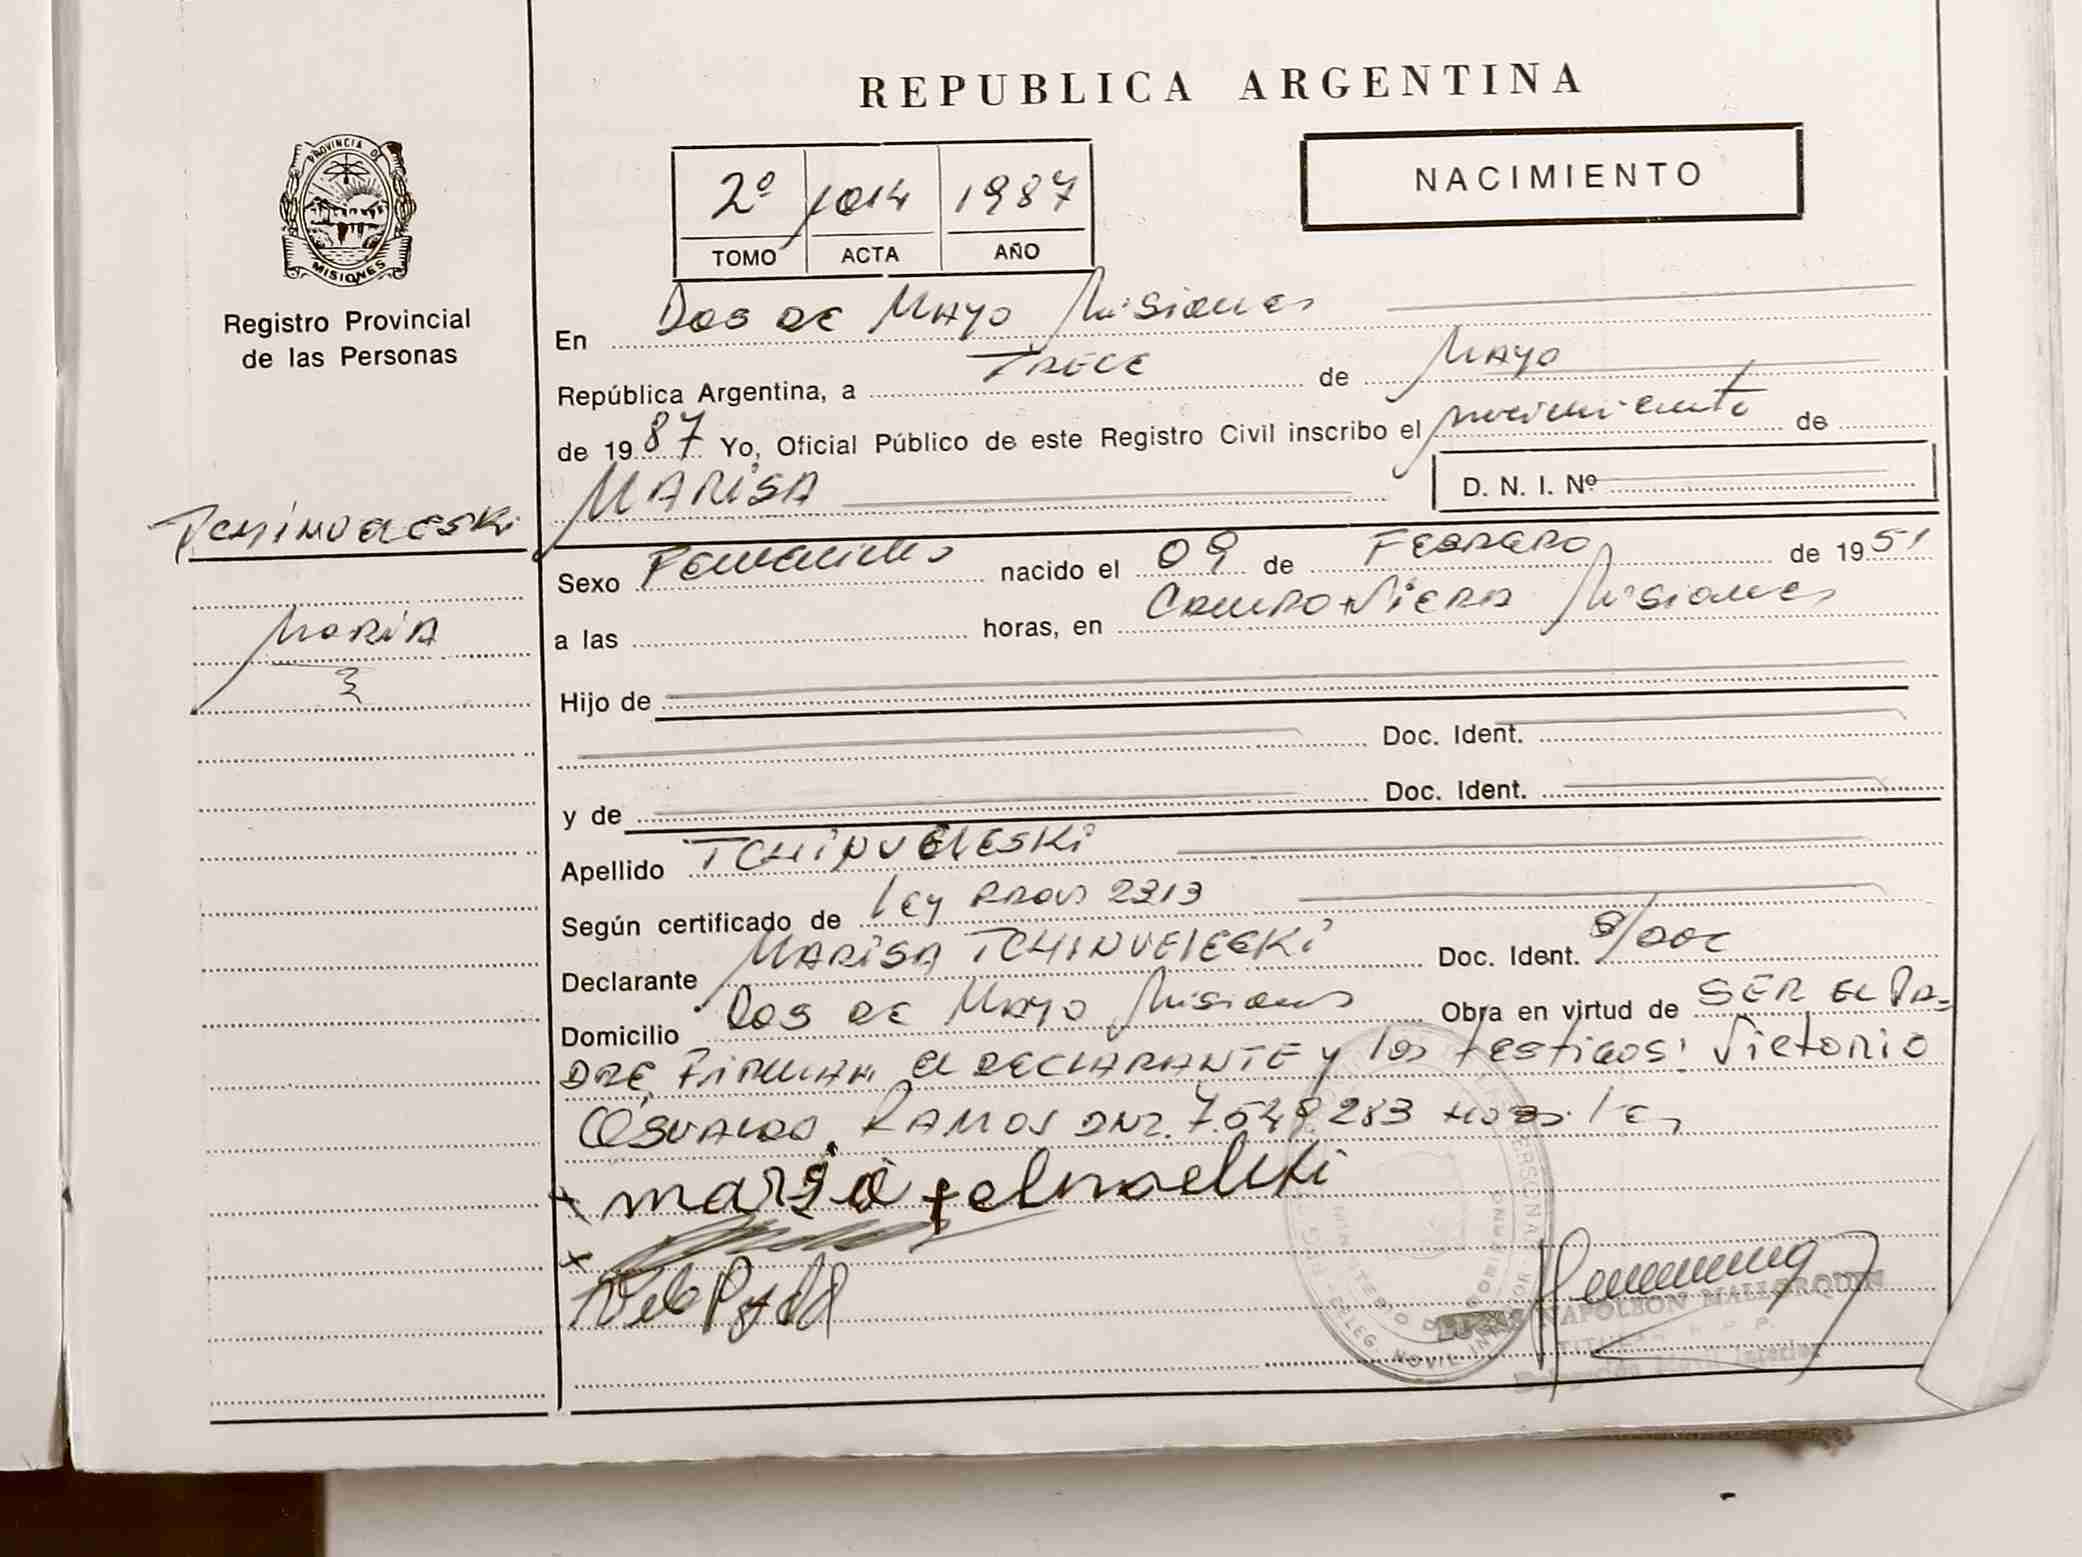 REPUBLICA ARGENTINA
PROVINCIA DE
MISIONES
Registro Provincial
de las Personas
2º 1014 1987
TOMO ACTA AÑO
NACIMIENTO
En Dos de Mayo Misiones
República Argentina, a TRECE de Mayo
de 1987 Yo, Oficial Público de este Registro Civil inscribo el nacimiento de
MARISA D. N. I. Nº
TCHINVELESKi
MARIA
Sexo Femenino nacido el 09 de FEBRERO de 1951
a las horas, en Campo Viera Misiones
Hijo de
Doc. Ident.
y de Doc. Ident.
Apellido TCHiNVELESKi
Según certificado de Ley PROV 2313
Declarante MARiSA TCHINVELESKi Doc. Ident. S/DOC
Domicilio Dos de Mayo Misiones Obra en virtud de SER EL PA-
DRE, FiRMAN EL DECLARANTE y los testigos: Victorio
OSVALDO RAMOS DNI. 7.548.283
x maria
x
NAPOLEON MALLORQUIN
TITULAR
DELEG. MOVIL INTERIOR